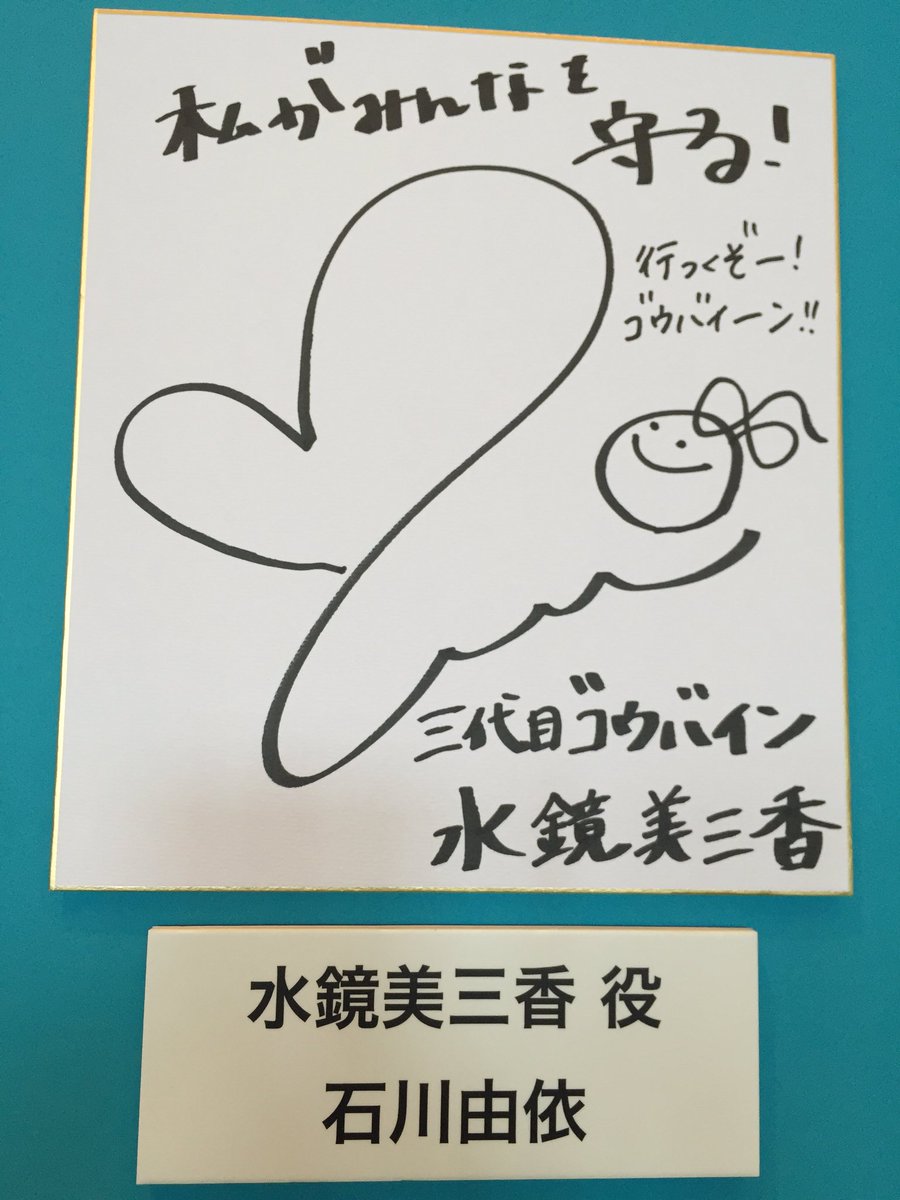 私がみんなを
守る!
行っくぞー!
ゴウバイーン!!
三代目ゴウバイン
水鏡美三香
水鏡美三香 役
石川由依